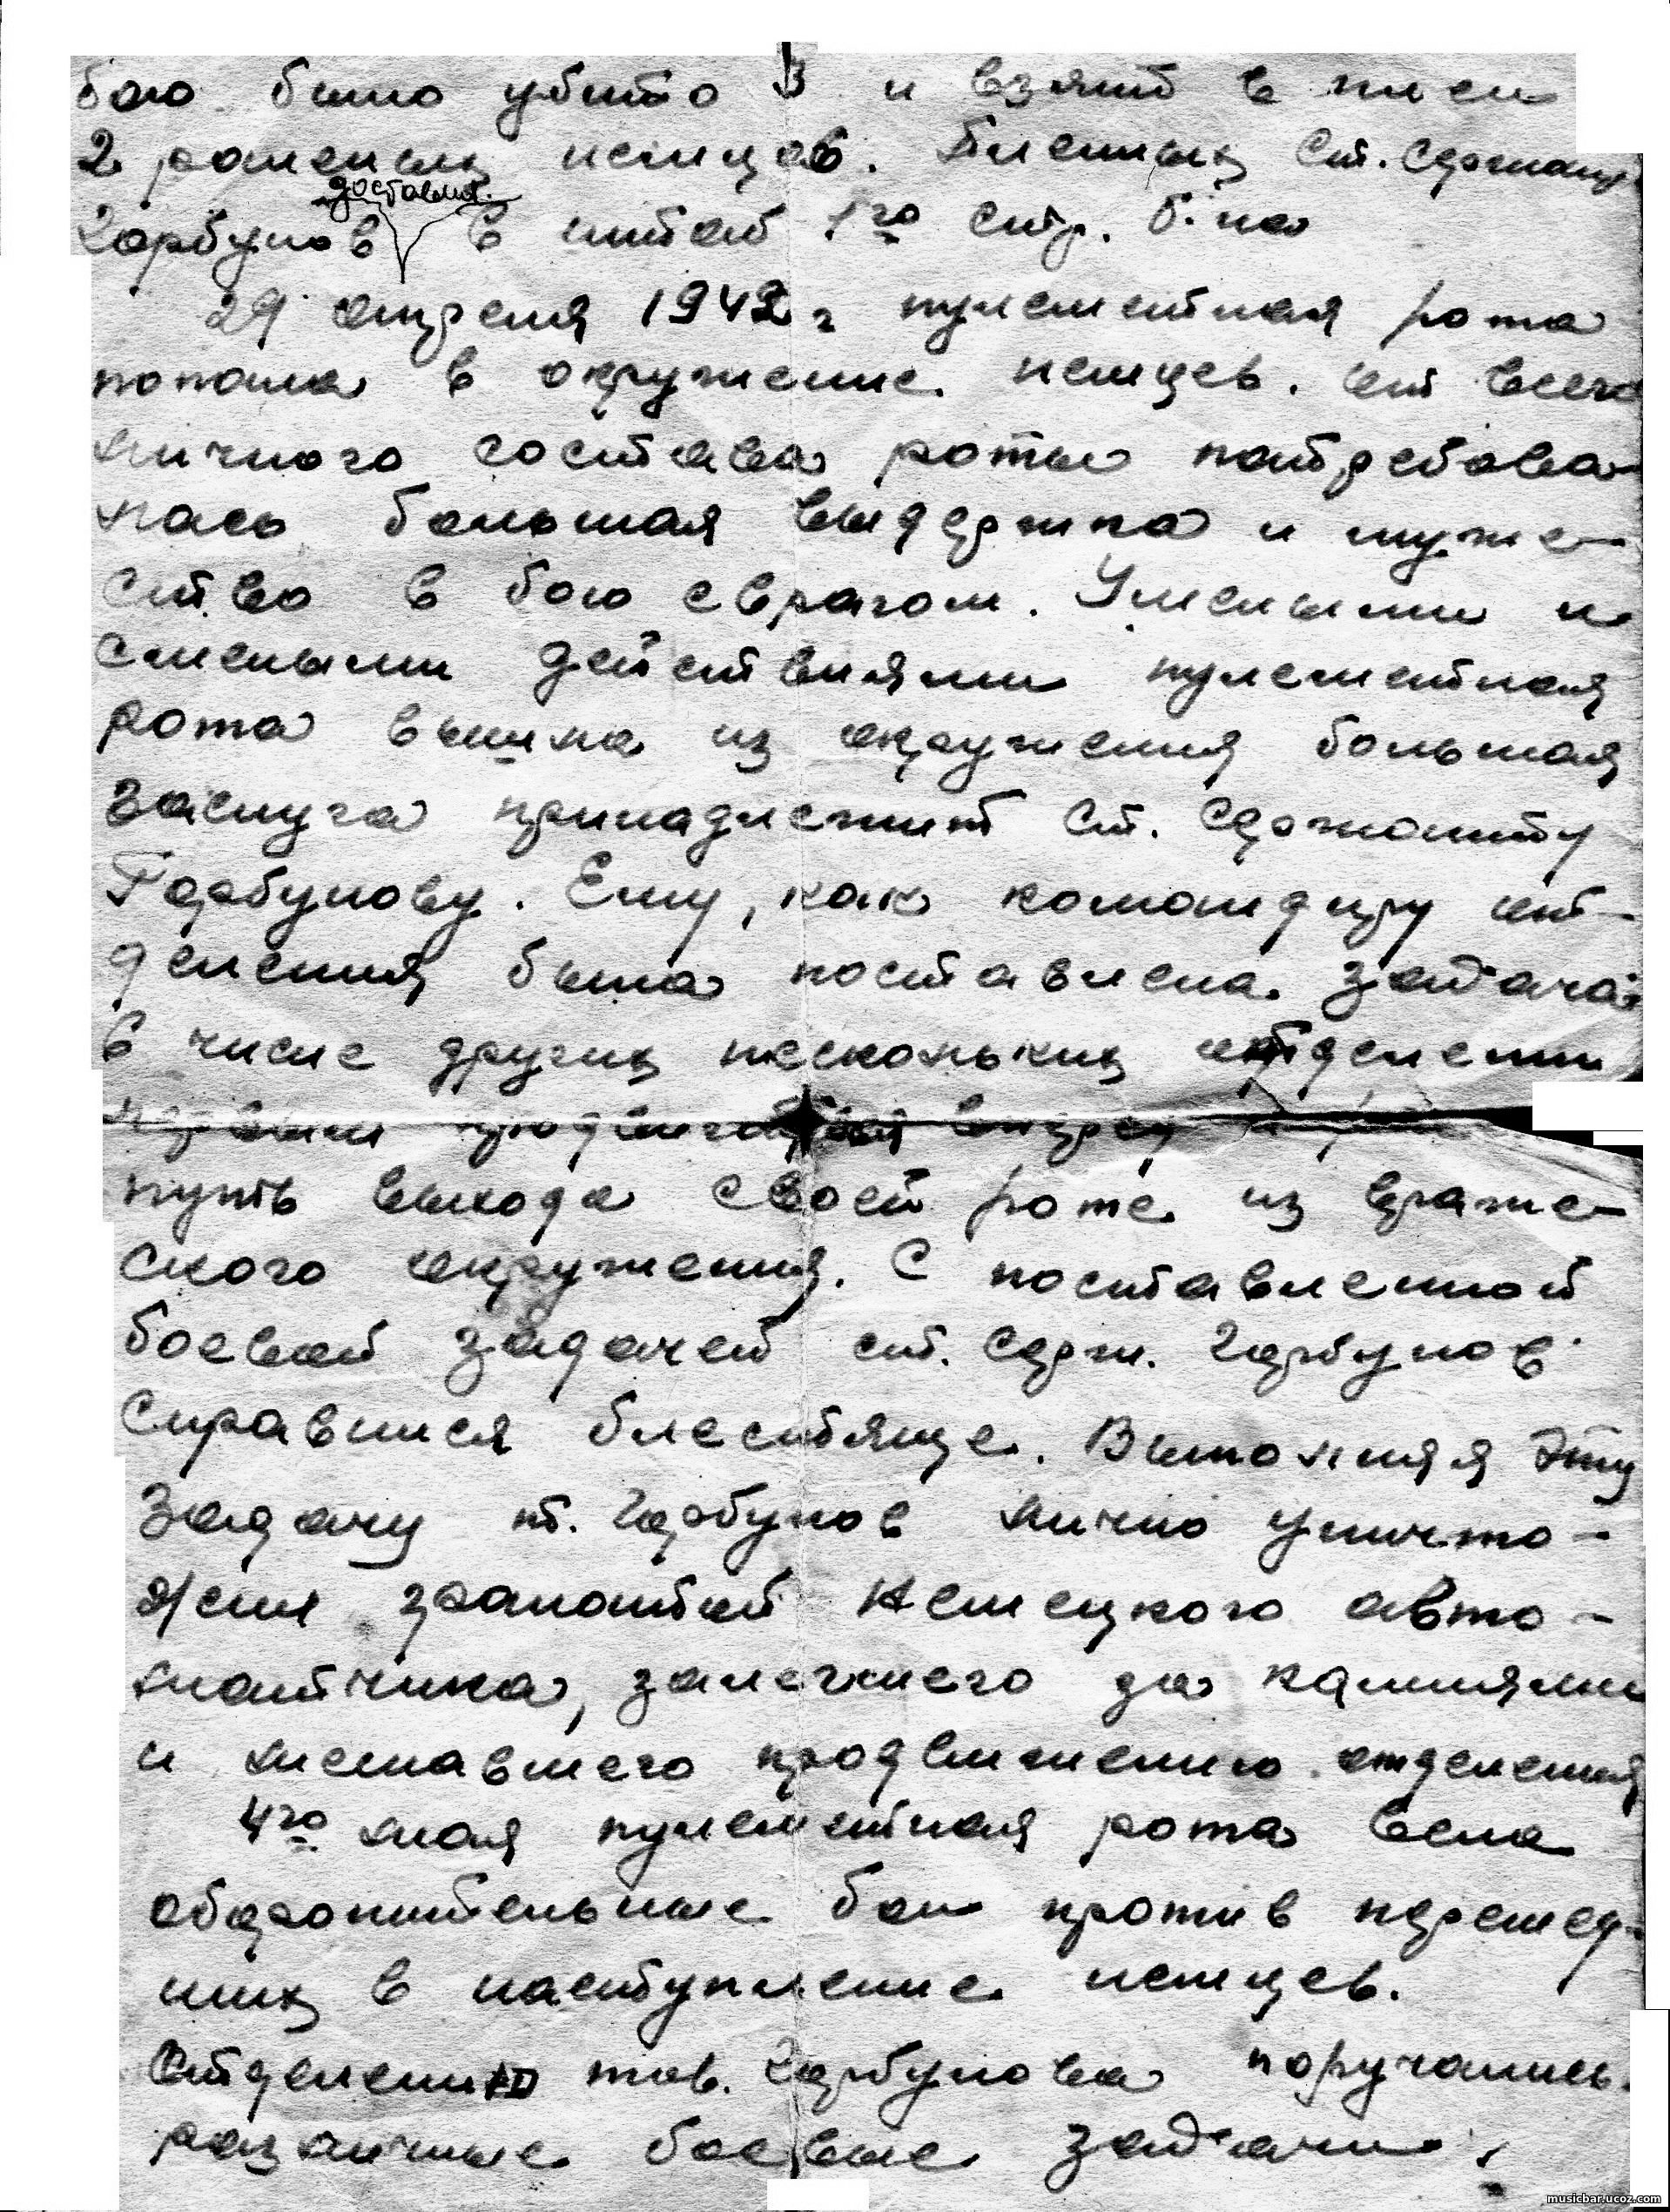 бою было убито 3 и взято в плен
2 раненых немцев. Пленных Ст. Сержант
доставил
Горбунов в штаб 1го стр. б-на
29 апреля 1942 г пулеметная рота
попала в окружение немцев. От всего
личного состава роты потребова-
лась большая выдержка и муже-
ство в бою с врагом. Умелыми и
смелыми действиями пулеметная
рота вышла из окружения большая
заслуга принадлежит Ст. Сержанту
Горбунову. Ему, как командиру от-
деления была поставлена задача
в числе других нескольких отделений
вперед
путь выхода своей роте из враже-
ского окружения. С поставленной
боевой задачей ст. Серж. Горбунов
справился блестяще. Выполняя эту
задачу т. Горбунов лично уничто-
жил гранатой немецкого авто-
матчика, залегшего за камнями
и мешавшего продвижению отделения
4го мая пулеметная рота вела
оборонительные бои против перешед-
ших в наступление немцев.
Отделению тов. Горбунова поручались
различные боевые задачи.
musicbar.ucoz.com